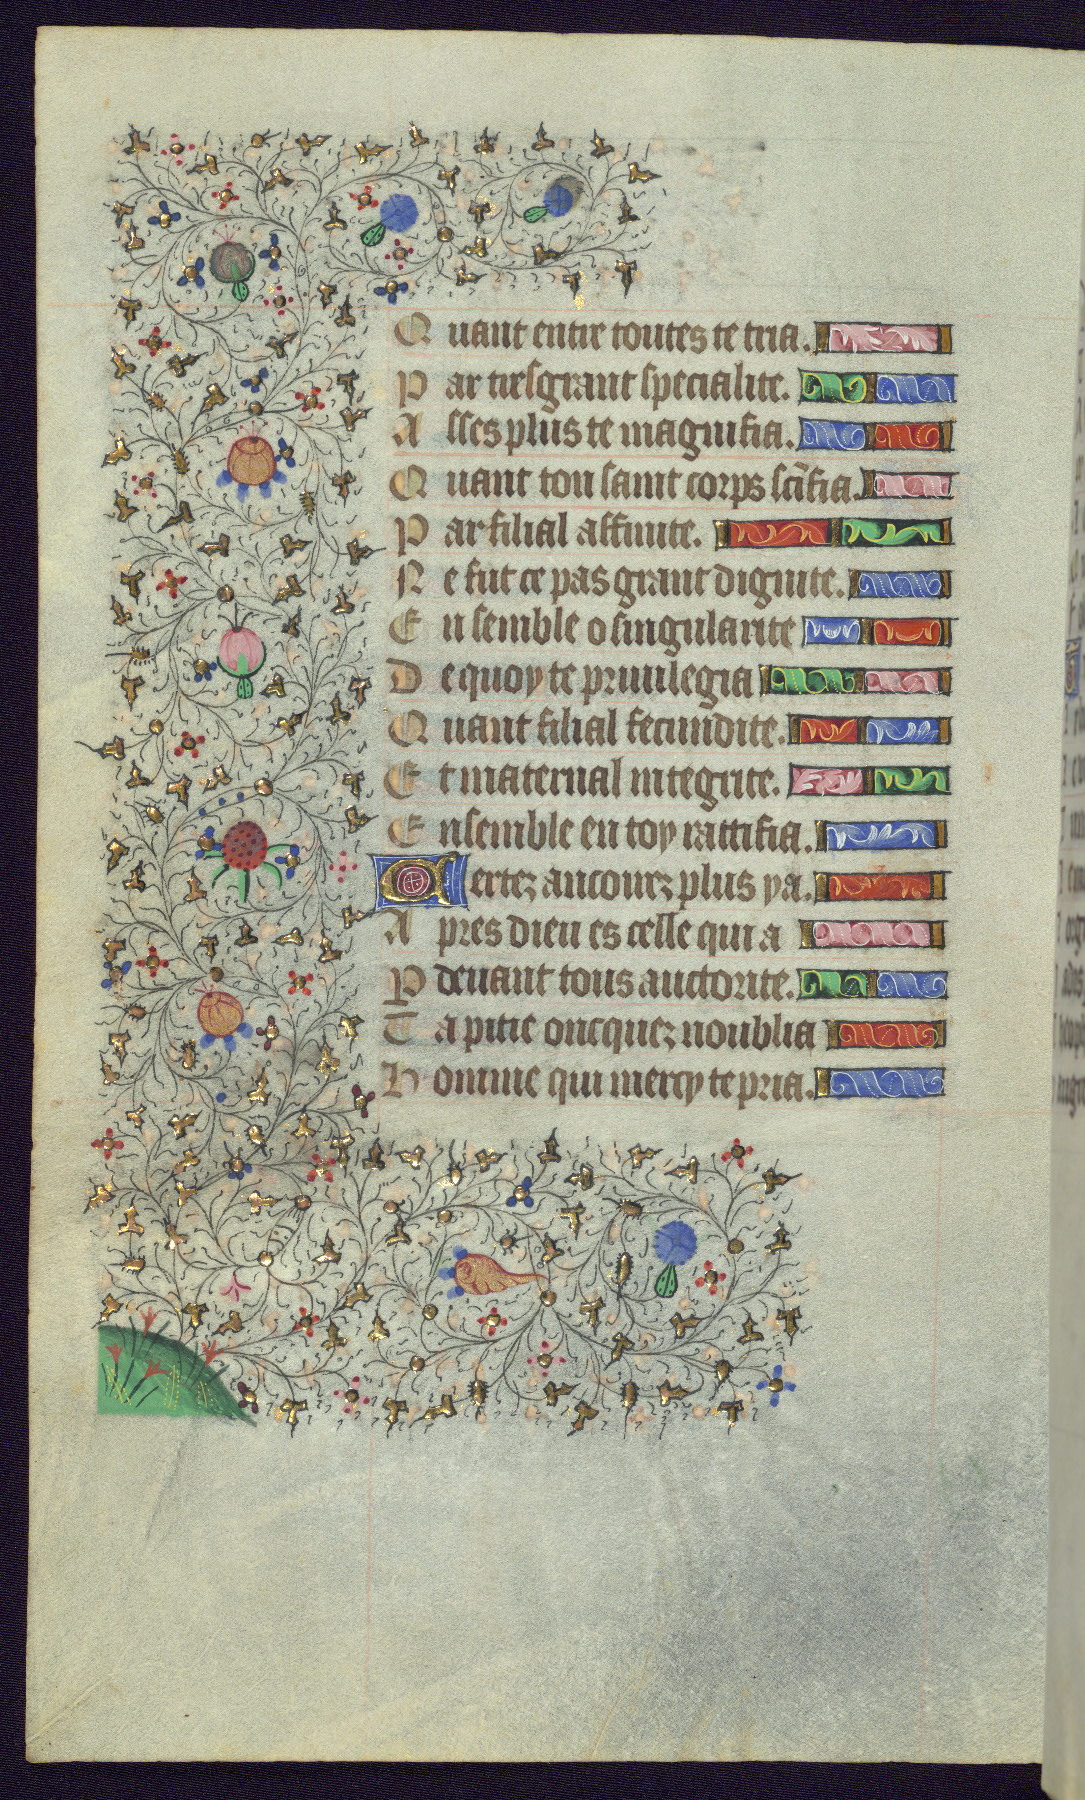 Quant entre toutes te tria.
Par tresgrant specialite.
Asses plus te magnifia.
Quant ton saint corps sc̄ifia.
Par filial affinite.
Ne fut ce pas grant dignite.
En semble o singularite
De quoy te priuilegia
Quant filial fecundite.
Et maternal integrite.
Ensemble en toy rattifia.
Certez aucouez plus ya.
Apres dieu es celle qui a
P deuant tous auctorite.
Ta pitie oncquez noublia
Homme qui mercy te pria.